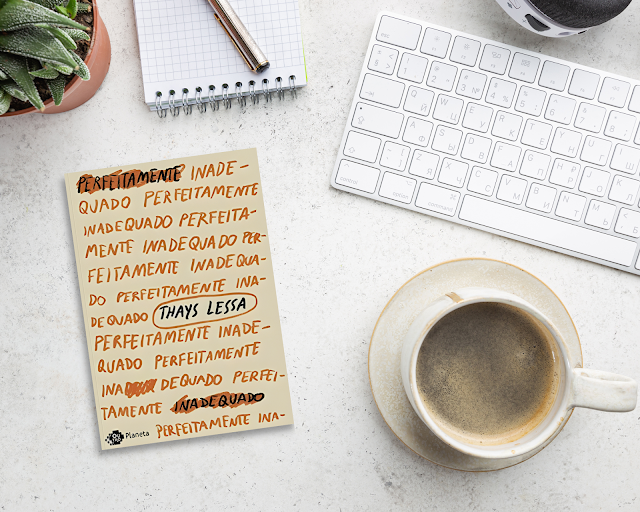 PERFEITAMENTE INADE-
QUADO PERFEITAMENTE
INADEQUADO PERFEITA-
MENTE INADEQUADO PER-
FEITAMENTE INADEQUA-
DO PERFEITAMENTE INA-
DEQUADO THAYS LESSA
PERFEITAMENTE INADE-
QUADO PERFEITAMENTE
INA DEQUADO PERFEI-
TAMENTE INADEQUADO
Planeta PERFEITAMENTE INA-